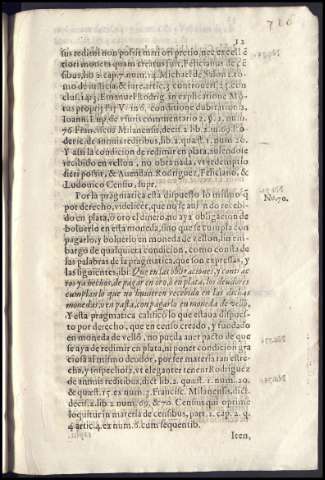 12
sus redimi non possit maiori pretio, nec excellē
tiori moneta quam creatus fuit, Felicianus de cē
sibus, lib. 2. cap. 7. num. 14. Michael de Salon 2. to-
mo de iustitia & iure artic. 3. controuers. 23. con
clus. 1. & 3. Emanuel Rodrig. in explicatione Mo-
tus proprij Pij V. conditione
Ioann. Lup. de vsuris commentario 2. §. 2. num.
76. Franciscus Milanensis, decis. 2. lib. 2. Ro
deric. de annuis reditibus, lib. 2. quæst. 1. num. 26.
Y assi la condicion de redimir en plata, siendo le
recibido en vellon, no obra nada, vt redemptio
fieri possit, & Auendan. Rodriguez, Feliciano, &
Ludouico Censio, supr.
Por la pragmatica està dispuesto lo mismo q̃
por derecho, videlicet, que no se auiendo recebi-
do en plata, ò oro el dinero, no aya obligacion de
boluerlo en esta moneda, sino que se cumpla con
pagarlo, y boluerlo en moneda de vellon, sin em-
bargo de qualquiera condicion, como consta de
las palabras de la pragmatica, que son expressas, y
las siguientes, ibi: Que en las obligaciones, y contrac
tos ya hechos, de pagar en oro, ò en plata, los deudores
cumplan lo que no huuieren recebido en las dichas
monedas, ù en pasta, con pagarlo en moneda de vellõ,
Y esta pragmatica calificò lo que estaua dispues-
to por derecho, que en censo creado, y fundado
en moneda de vellõ, no pueda auer pacto de que
se aya de redimir en plata, ni poner condicion gra
ciosa al mismo deudor, por ser materia tan estre-
cha, y sospechosa, vt eleganter tenent Rodriguez
de annuis reditibus, dict. lib. 2. quæst. 1. num. 20.
& quæst. 15. ex num. 7. Francisc. Milanensis, dict.
decis. 2. lib. 2. num. 69. & 70. Censius qui optime
loquitur in materia de censibus, part. 1. cap. 2. q.
4. artic. 4. ex num. 6. cum sequentib.
Nu. 70.
Iten,